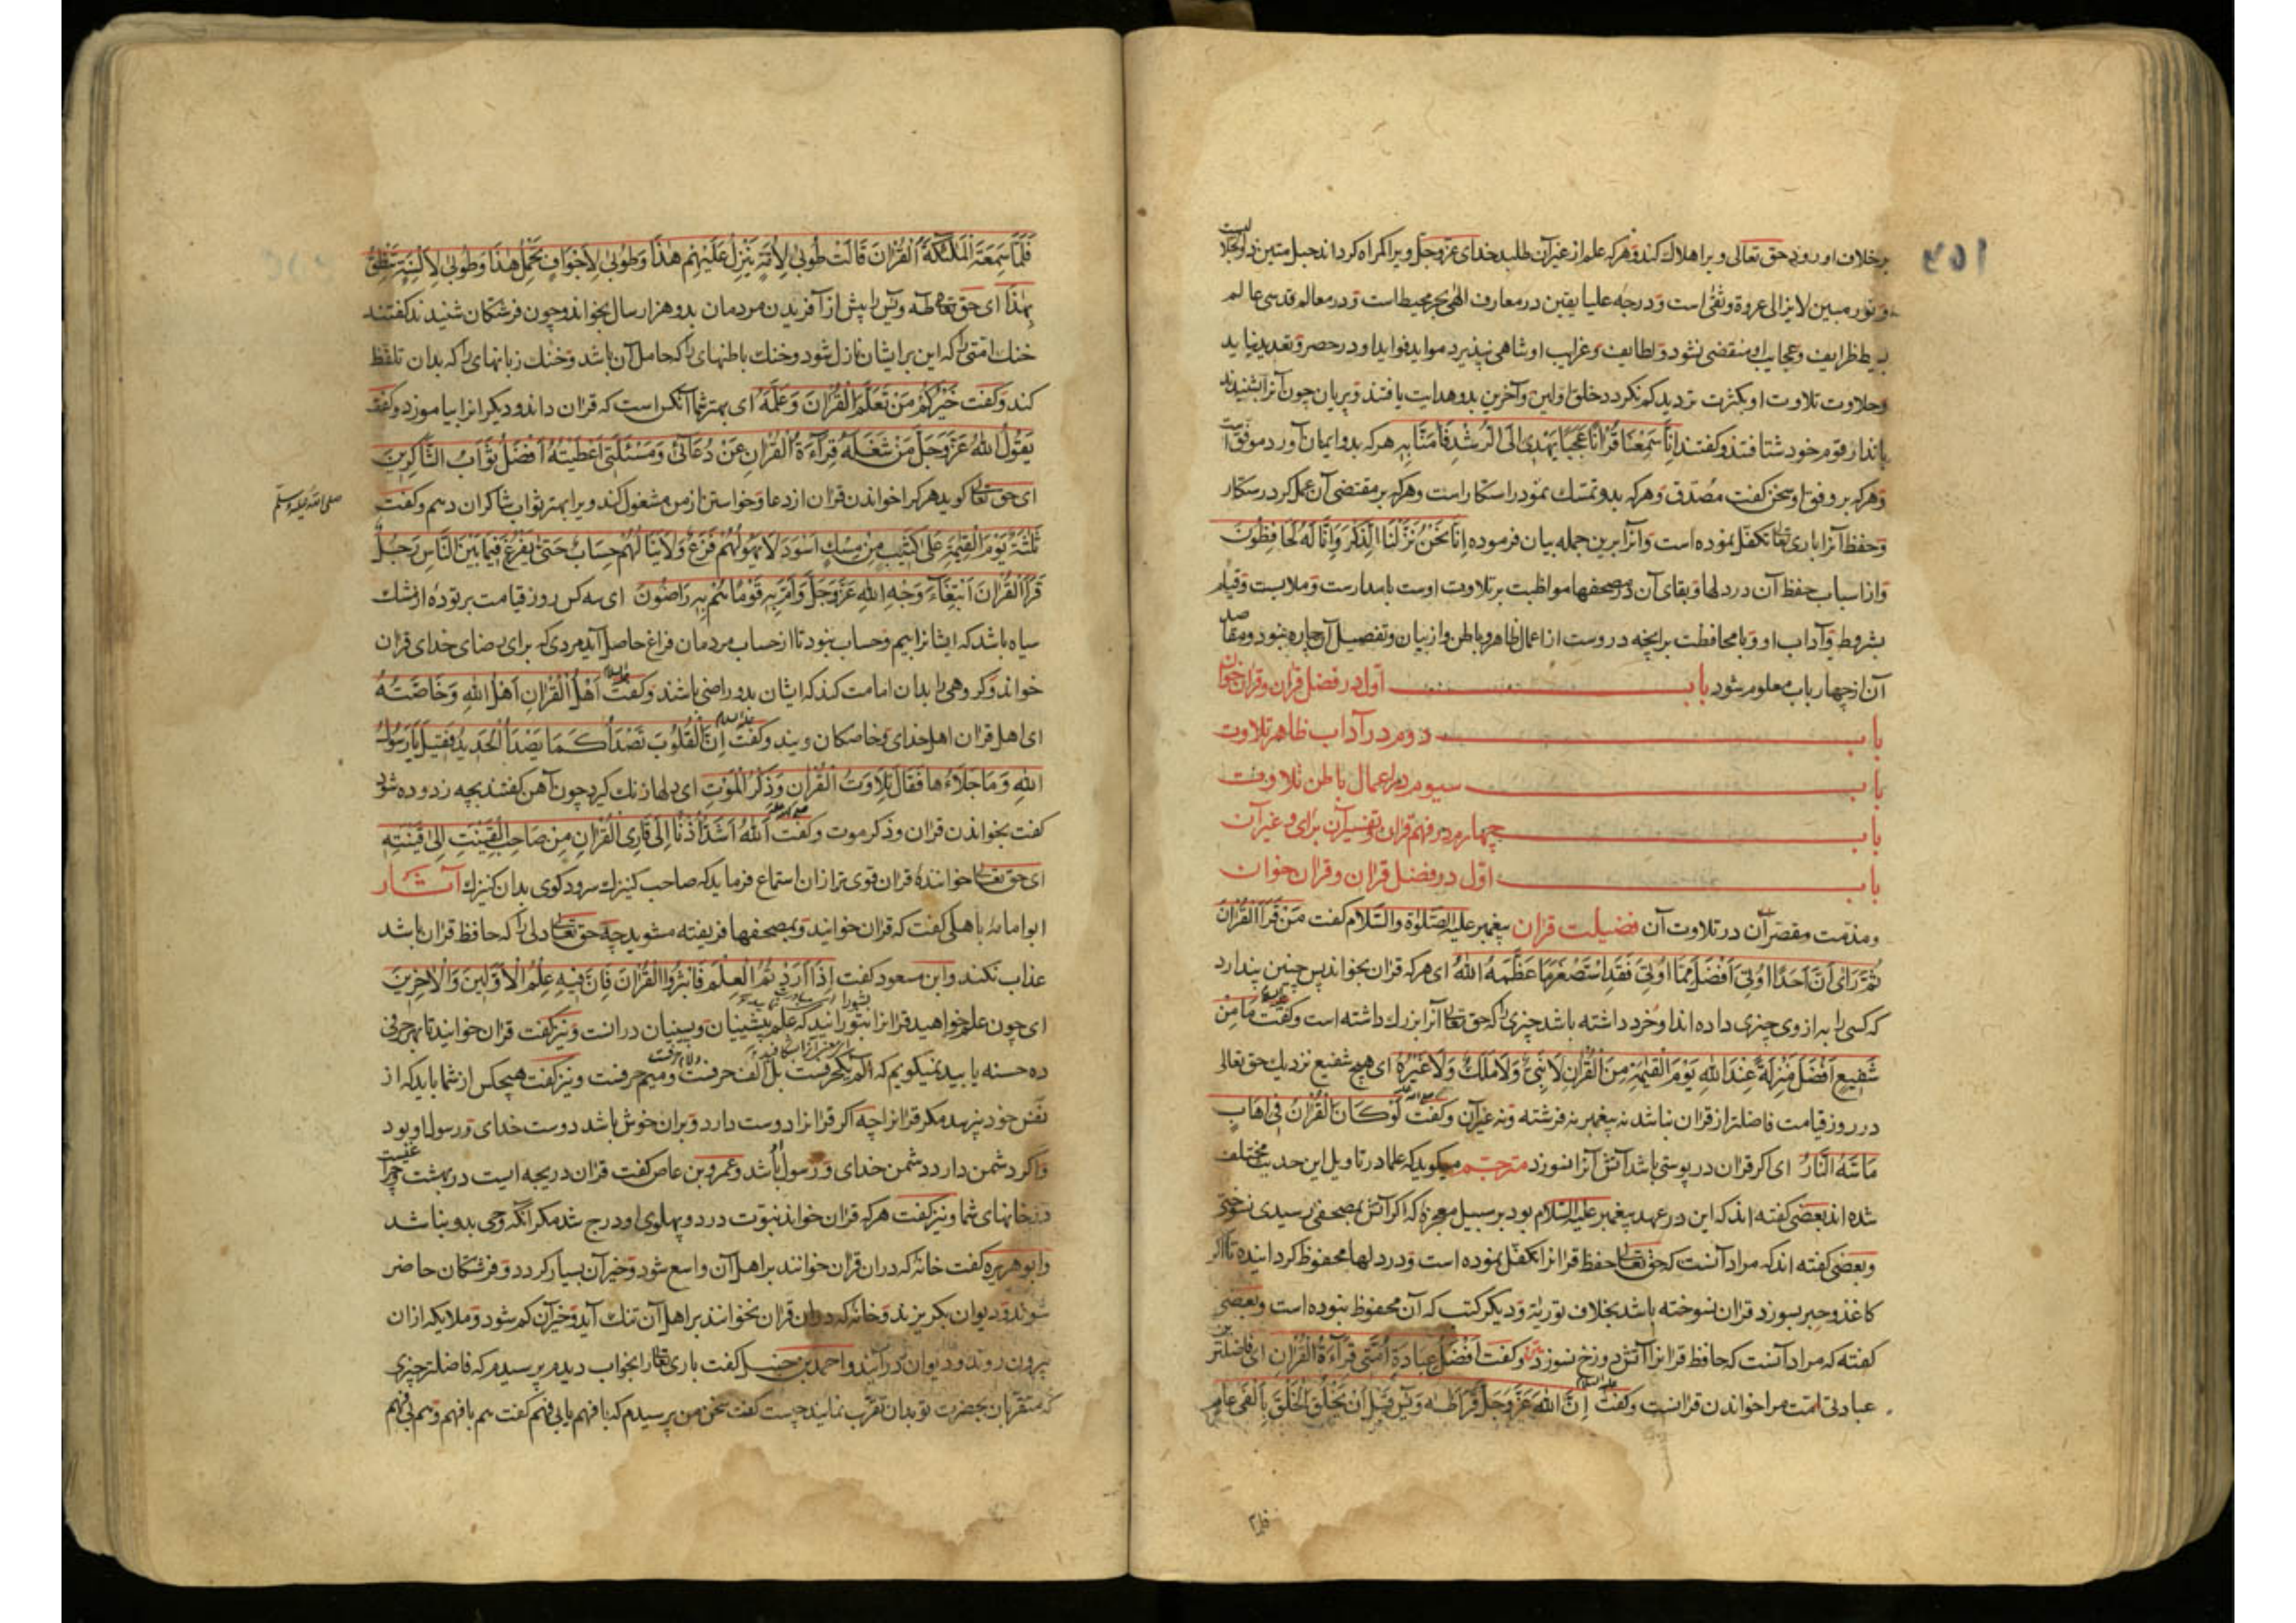 برخلاف او رود حق تعالی ویرا هلاک کند و هرکه علم از غیر آن طلبد خدای عزوجل ویرا گمراه گرداند حبل متین
و نور مبین لایزالی عروة وثقی است و درجه علیا یقین در معارف الهی بحر محیط است و در معالم قدسی عالم
بسیط ظرایف و عجایب او منقضی نشود و لطایف و غرایب او تناهی نپذیرد مواید فواید او در حصر و تعدید نیاید
وحلاوت تلاوت او بکثرت تردید کم نگردد خلق اولین وآخرین بدو هدایت یافتند و پریان چون آنرا بشنیدند
بانذار قوم خود شتافتند وگفتند اِنَّا سَمِعْنَا قُرْاٰنًا عَجَبًا یَهْدِی اِلَی الرُّشْدِ فَاٰمَنَّا بِهِ هرکه بدو ایمان آورد موفق است
وهرکه بر وفق او سخن گفت مصدق وهرکه بدو تمسک نمود راستکار است وهرکه بر مقتضی آن عمل کرد رستکار
وحفظ آنرا باری تعالی تکفل نموده است وآنرا برین جمله بیان فرموده اِنَّا نَحْنُ نَزَّلْنَا الذِّکْرَ وَاِنَّا لَهُ لَحَافِظُونَ
واز اسباب حفظ آن در دلها وبقای آن در مصحفها مواظبت بر تلاوت اوست بامدارست وملابست وقیام
بشروط وآداب او وبا محافظت برانچه دروست از اعمال ظاهر وباطن واز بیان وتفصیل آن چاره نبود ومقاصد
آن از چهار باب معلوم شود باب اول در فضل قرآن وقرآن خوان
باب دوم در آداب ظاهر تلاوت
باب سیوم در اعمال باطن تلاوت
باب چهارم در فهم قرآن وتفسیر آن برای وغیر آن
باب اول در فضل قرآن وقرآن خوان
ومذمت مقصر آن در تلاوت آن فضیلت قرآن پیغمبر علیه الصلوة والسلام گفت مَنْ قَرَأَ الْقُرْآنَ
ثُمَّ رَاٰی اَنَّ اَحَدًا اُوتِیَ اَفْضَلَ مِمَّا اُوتِیَ فَقَدِ اسْتَصْغَرَ مَا عَظَّمَهُ اللهُ ای هرکه قرآن بخواند پس چنین پندارد
که کسی را به از وی چیزی داده اند او خرد داشته باشد چیزی را که حق تعالی آنرا بزرک داشته است وگفت مَا مِنْ
شَفِیعٍ اَفْضَلَ مَنْزِلَةً عِنْدَ اللهِ یَوْمَ الْقِیٰمَةِ مِنَ الْقُرْآنِ لَا نَبِیٌّ وَلَا مَلَکٌ وَلَا غَیْرُهُ ای هیچ شفیع نزدیک حق تعالی
در روز قیامت فاضلتر از قرآن نباشد نه پیغمبر نه فرشته ونه غیر آن وگفت لَوْ کَانَ الْقُرْآنُ فِی اِهَابٍ
مَا مَسَّهُ النَّارُ ای اکر قرآن در پوستی باشد آتش آنرا نسوزد مترجم میکوید که علما در تاویل این حدیث مختلف
شده اند بعضی گفته اند که این در عهد پیغمبر علیه السلام بود بر سبیل معجزه که اکر آتش بمصحفی رسیدی نسوختی
وبعضی گفته اند که مراد آنست که حق تعالی حفظ قرآن را تکفل نموده است ودر دلها محفوظ گردانیده تا اکر
کاغذ وحبر بسوزد قرآن نسوخته باشد بخلاف توریة ودیکر کتب که آن محفوظ نبوده است وبعضی
گفته که مراد آنست که حافظ قرآن را آتش دوزخ نسوزد وگفت اَفْضَلُ عِبَادَةِ اُمَّتِی قِرَاءَةُ الْقُرْآنِ ای فاضلترین
عبادتی امت مرا خواندن قرآنست وگفت علیه السلام اِنَّ اللهَ عَزَّ وَجَلَّ قَرَأَ طٰهٰ وَیٰسٓ قَبْلَ اَنْ یَخْلُقَ الْخَلْقَ بِاَلْفَیْ عَامٍ
فلما
فَلَمَّا سَمِعَتِ الْمَلٰئِکَةُ الْقُرْآنَ قَالَتْ طُوبٰی لِاُمَّةٍ یَنْزِلُ عَلَیْهِمْ هٰذَا وَطُوبٰی لِاَجْوَافٍ تَحْمِلُ هٰذَا وَطُوبٰی لِاَلْسِنَةٍ تَنْطِقُ
بِهٰذَا ای حق تعالی طه ویس را پیش از آفریدن مردمان بدو هزار سال بخواند وچون فرشتکان شنیدند گفتند
خنک امتی را که این بر ایشان نازل شود وخنک باطنهای را که حامل آن باشد وخنک زبانهای را که بدان تلفظ
کند وگفت خَیْرُکُمْ مَنْ تَعَلَّمَ الْقُرْآنَ وَعَلَّمَهُ ای بهتر شما آنکس است که قرآن داند ودیکرانرا بیاموزد وگفت
یَقُولُ اللهُ عَزَّ وَجَلَّ مَنْ شَغَلَهُ قِرَاءَةُ الْقُرْآنِ عَنْ دُعَائِی وَمَسْئَلَتِی اَعْطَیْتُهُ اَفْضَلَ ثَوَابِ الشَّاکِرِینَ
ای حق تعالی کوید هرکرا خواندن قرآن از دعا وخواستن از من مشغول کند ویرا بهتر ثواب شاکران دهم وگفت
صلی الله علیه وسلم
ثَلٰثَةٌ یَوْمَ الْقِیٰمَةِ عَلٰی کَثِیبٍ مِنْ مِسْکٍ اَسْوَدَ لَا یَهُولُهُمْ فَزَعٌ وَلَا یَنَالُهُمْ حِسَابٌ حَتّٰی یُفْرَغَ فِیمَا بَیْنَ النَّاسِ رَجُلٌ
قَرَأَ الْقُرْآنَ ابْتِغَاءَ وَجْهِ اللهِ عَزَّ وَجَلَّ وَاَمَّ بِهِ قَوْمًا هُمْ بِهِ رَاضُونَ ای سه کس روز قیامت بر توده از مشک
سیاه باشد که ایشانرا بیم وحساب نبود تا از حساب مردمان فراغ حاصل آید مردی که برای رضای خدای قرآن
خواند وکروهی را بدان امامت کند که ایشان بدو راضی باشند وگفت علیه السلام اَهْلُ الْقُرْآنِ اَهْلُ اللهِ وَخَاصَّتُهُ
ای اهل قرآن اهل خدای وخاصکان ویند وگفت علیه السلام اِنَّ الْقُلُوبَ تَصْدَأُ کَمَا یَصْدَأُ الْحَدِیدُ فَقِیلَ یَا رَسُولَ
اللهِ وَمَا جَلَاءُهَا فَقَالَ تِلَاوَتُ الْقُرْآنِ وَذِکْرُ الْمَوْتِ ای دلها زنک کیرد چون آهن گفتند بچه زدوده شود
گفت بخواندن قرآن وذکر موت وگفت اَللهُ اَشَدُّ اُذُنًا اِلٰی قَارِئِ الْقُرْآنِ مِنْ صَاحِبِ الْقَیْنَتِ اِلٰی قَیْنَتِهِ
ای حق تعالی خوانندۀ قرآن قوی تر از ان استماع فرماید که صاحب کنیزک سرود کوی بدان کنیزک آثار
ابو امامۀ باهلی گفت که قرآن خوانید وبمصحفها فریفته مشوید چه حق تعالی دلی را که حافظ قرآن باشد
عذاب نکند وابن مسعود گفت اِذَا اَرَدْتُمُ الْعِلْمَ فَانْثُرُوا الْقُرْآنَ فَاِنَّ فِیهِ عِلْمَ الْاَوَّلِینَ وَالْاٰخِرِینَ
ای چون علم خواهید قرآنرا بشورانید که علم پیشینیان وپسینیان درانست ونیز گفت قرآن خوانید تا بهر حرفی
ده حسنه یابید نمیکویم که الم یکحرفست بل الف حرفست ولام حرفست ومیم حرفست ونیز گفت هیچکس از شما باید که از
نفس خود نپرسد مکر قرآنرا چه اکر قرآنرا دوست دارد وبران خوش باشد دوست خدای ورسول او بود
واکر دشمن دارد دشمن خدای ورسول باشد وعمرو بن عاص گفت قرآن دریجه ایست در بهشت وچراغیست
در خانهای شما ونیز گفت هرکه قرآن خواند نبوت در دو پهلوی او درج شد مکر آنکه وحی بدو نباشد
وابو هریره گفت خانۀ که دران قرآن خوانند بر اهل آن واسع شود وخیر آن بسیار کردد وفرشتکان حاضر
شوند ودیوان بکریزند وخانۀ که دران قرآن نخوانند بر اهل آن تنک آید وخیر آن کم شود وملایکه ازان
بیرون روند ودیوان درآیند واحمد بن حنبل گفت باری تعالی را بخواب دیدم پرسیدم که فاضلتر چیزی
که متقربان بحضرت تو بدان تقرب نمایند چیست گفت سخن من پرسیدم که با فهم یا بی فهم گفت هم با فهم وهم بی فهم